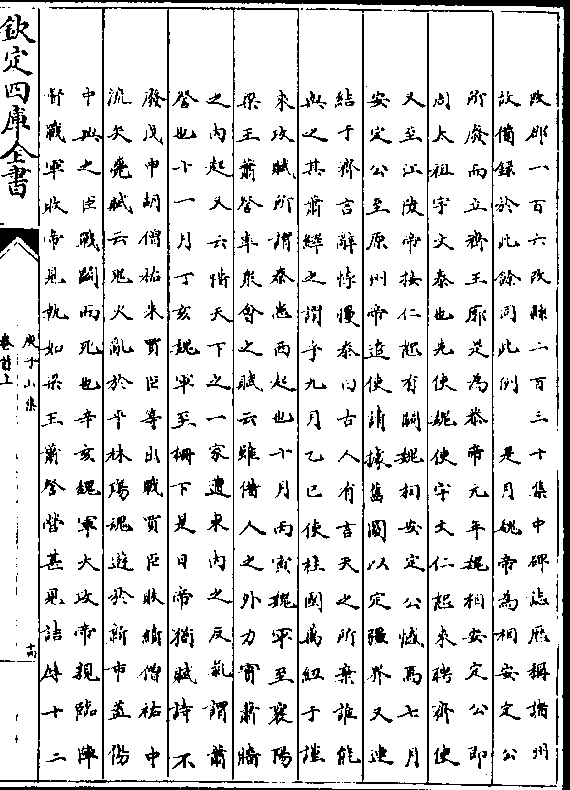 改郡一百六改縣二百三十集中碑誌所稱諸州
故備録於此餘同此例 是月魏帝為相安定公
所廢而立齊王廓是為恭帝元年魏相安定公即
周太祖宇文泰也先使魏使宇文仁恕來聘齊使
又至江陵帝接仁恕有闕魏相安定公憾焉七月
安定公至原州帝遣使請據舊圖以定疆界又連
結于齊言辭悖慢泰曰古人有言天之所棄誰能
與之其蕭繹之謂乎九月乙巳使柱國萬紐于謹
來攻賦所謂秦患西起也十月丙寅魏軍至襄陽
梁王蕭詧率衆會之賦云雖借人之外力實蕭牆
之内起又云惜天下之一家遭東内之反氣謂蕭
詧也十一月丁亥魏軍至柵下是日帝猶賦詩不
廢戊申胡僧祐朱買臣等出戰買臣敗績僧祐中
流矢薨賦云鬼火亂於平林殤魂遊於新市蓋傷
中興之臣戰鬭而死也辛亥魏軍大攻帝親臨陣
督戰軍敗帝見執如梁王蕭詧營甚見詰辱十二
欽定四庫全書
庾子山集
卷首上